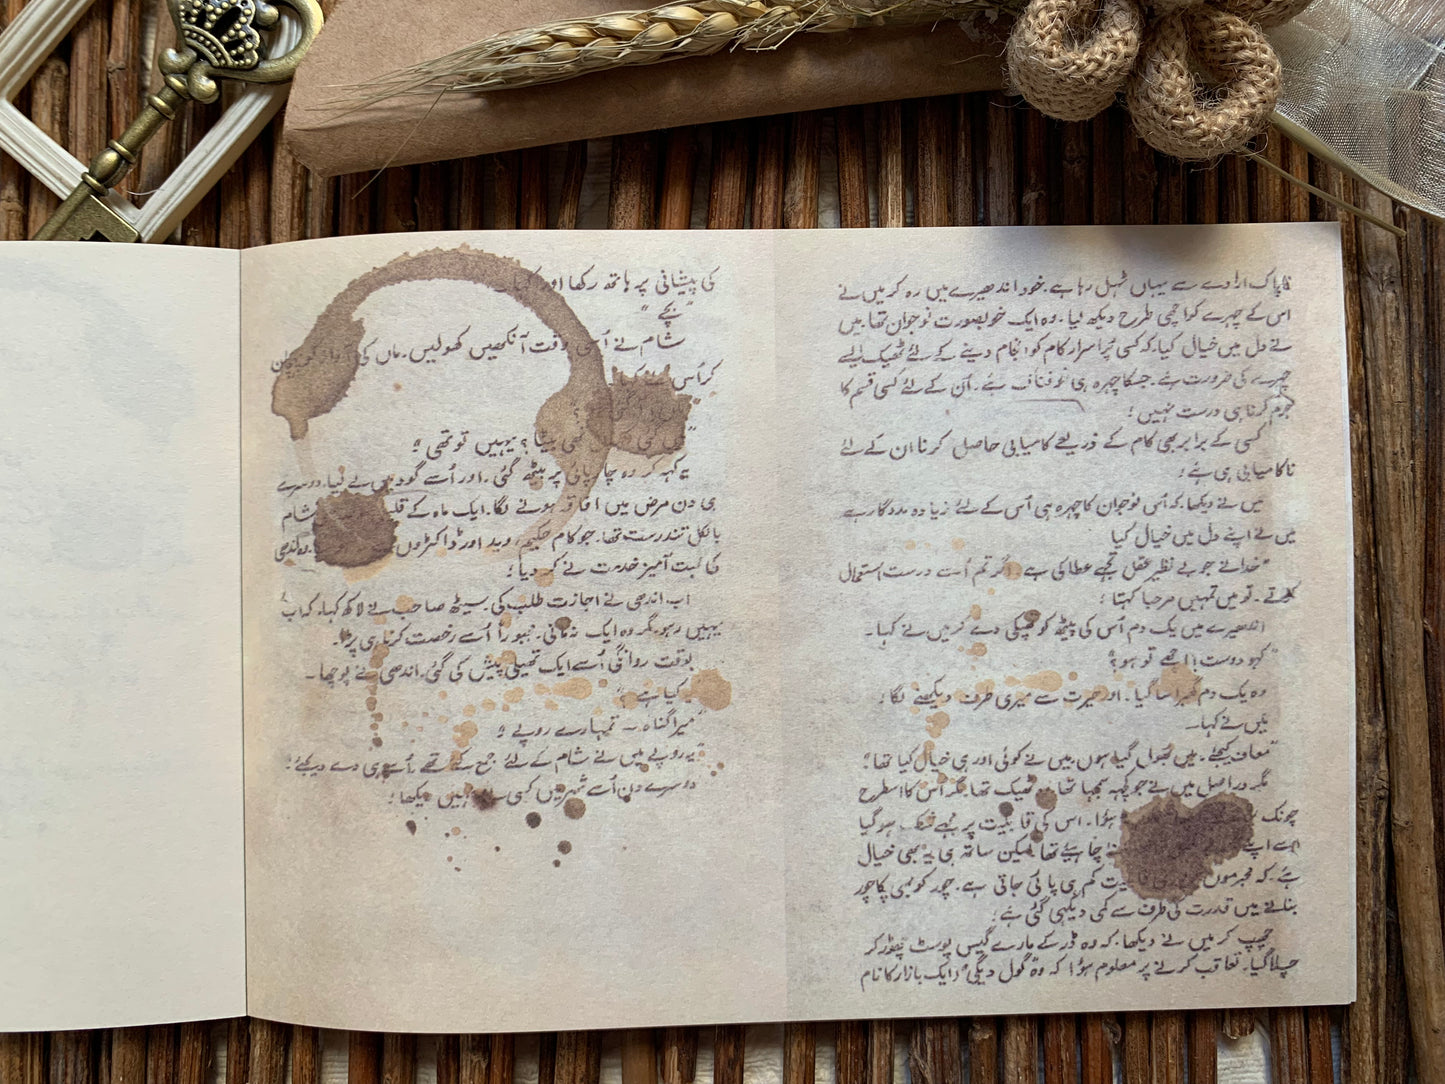 ناپاک ارادے سے یہاں ٹہل رہا ہے۔ خود اندھیرے میں رہ کر میں نے
اس کے چہرے کو اچھی طرح دیکھ لیا۔ وہ ایک خوبصورت نوجوان تھا۔ میں
نے دل میں خیال کیا۔ کہ کسی پُراسرار کام کو انجام دینے کے لئے ٹھیک ایسے
چہرے کی ضرورت ہے۔ جسکا چہرہ ہی خوفناک ہے۔ اُن کے لئے کسی قسم کا
جرم کرنا ہی درست نہیں؛
کسی کے برابر بھی کام کے ذریعے کامیابی حاصل کرنا ان کے لئے
ناکامیابی ہی ہے؛
میں نے دیکھا۔ کہ اُس نوجوان کا چہرہ ہی اُس کے لئے زیادہ مددگار ہے
میں نے اپنے دل میں خیال کیا
"خدا نے جو بے نظیر عقل تجھے عطا کی ہے۔ اگر تم اُسے درست استعمال
کرتے۔ تو میں تمہیں مرحبا کہتا؛
اندھیرے میں یک دم اُس کی پیٹھ کو تھپکی دے کر میں نے کہا۔
"کہو دوست! اچھے تو ہو؟"
وہ یک دم گھبرا سا گیا۔ اور حیرت سے میری طرف دیکھنے لگا؛
میں نے کہا۔
"معاف کیجئے۔ میں بھول گیا ہوں میں نے کوئی اور ہی خیال کیا تھا؛
مگر دراصل میں نے جو کچھ سمجھا تھا ٹھیک تھا۔ مگر اُس کا اسطرح
چونک ہؤا۔ اس کی قابلیت پر مجھے شک ہو گیا
اسے اپنے چاہیئے تھا لیکن ساتھ ہی یہ بھی خیال
ہے۔ کہ مجرموں قابلیت کم ہی پائی جاتی ہے۔ چور کو بھی پکا چور
بنانے میں قدرت کی طرف سے کمی دیکھی گئی ہے؛
چھپ کر میں نے دیکھا۔ کہ وہ ڈر کے مارے گیس پوسٹ چھوڑ کر
چلا گیا۔ تعاقب کرنے پر معلوم ہؤا کہ وہ گول دیگی" (ایک بازار کا نام
کی پیشانی پر ہاتھ رکھا اور کہا۔
"بچے"
شام نے اُسی وقت آنکھیں کھولیں۔ ماں کی آواز کو پہچان
کر اُس کہا
بیٹا؟ یہیں تو تھی؟
یہ کہہ کر وہ چارپائی پر بیٹھ گئی۔ اور اُسے گود میں لے لیا۔ دوسرے
ہی دن مرض میں افاقہ ہونے لگا۔ ایک ماہ کے شام
بالکل تندرست تھا۔ جو کام حکیم، وید اور ڈاکٹروں وہ اندھی
کی محبت آمیز خدمت نے کر دیا؛
اب اندھی نے اجازت طلب کی۔ سیٹھ صاحب نے لاکھ کہا۔ کہ اب
یہیں رہو۔ مگر وہ ایک نہ مانی۔ مجبوراً اُسے رخصت کرنا ہی پڑا۔
بوقت روانگی اُسے ایک تھیلی پیش کی گئی۔ اندھی نے پوچھا۔
"یہ کیا ہے"
"میرا گناہ — تمہارے روپے؟
"یہ روپے میں نے شام کے لئے جمع کئے تھے۔ اُسے ہی دے دیجئے؛
دوسرے دن اُسے شہر میں کسی نے نہیں دیکھا؛